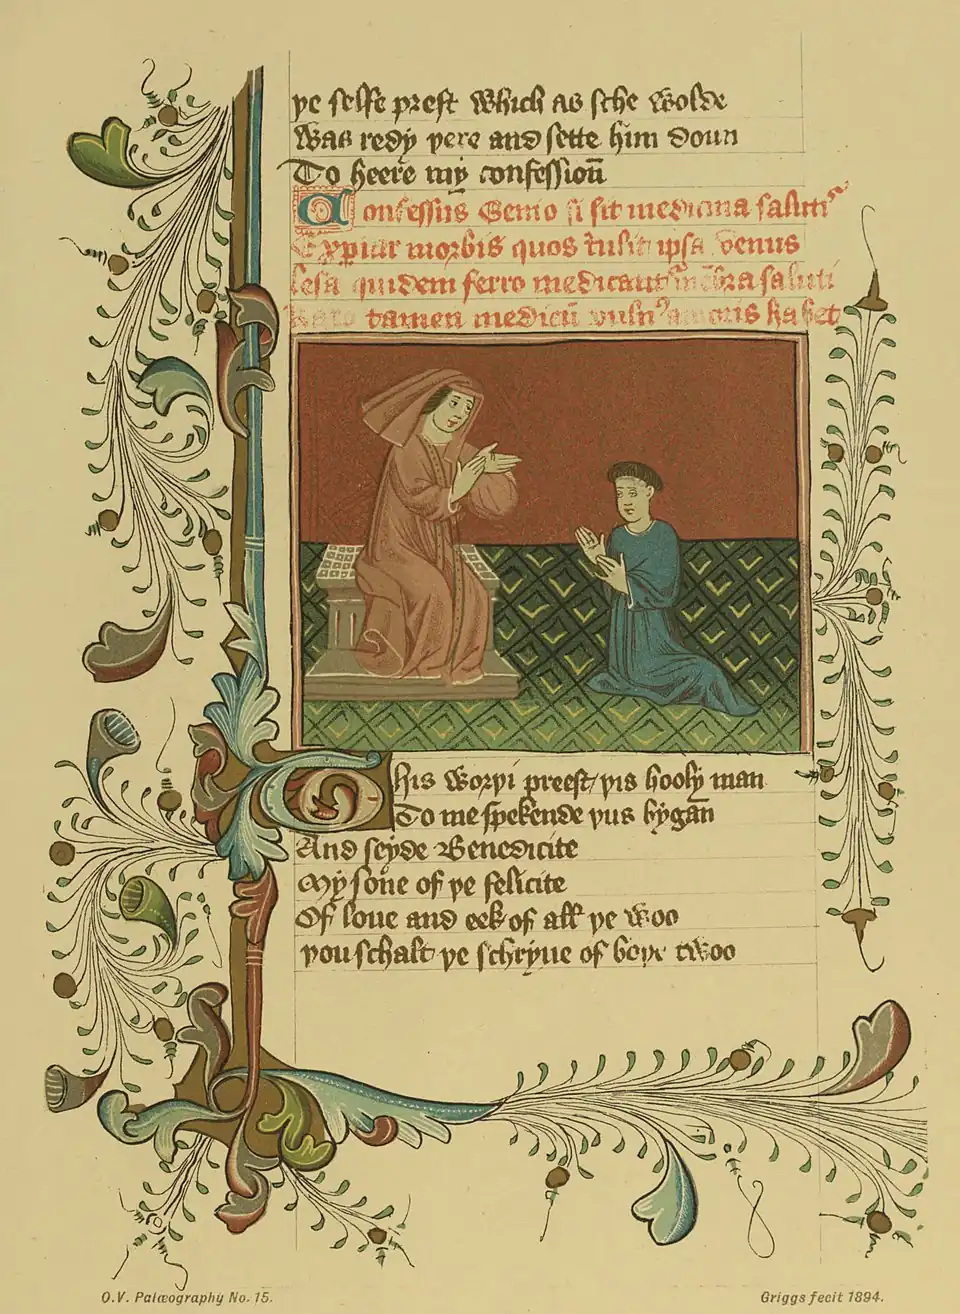 ye selfe prest which as sche wolde
Was redy yere and sette him doun
To heere my confessioun̄
Confessus Genio si sit medicina salutis
Expiar morbis quos tulit ipsa venus
lesa quidem ferro medicantur membra saluti
Raro tamen medicū vulnꝰ amoris habet
This woryi preest yis hooly man
To me spekende yus bygan̄
And seyde Benedicite
My sone of ye felicite
Of loue and eek of all ye woo
you schalt ye schryue of boye twoo
O.V. Palæography No. 15.
Griggs fecit 1894.